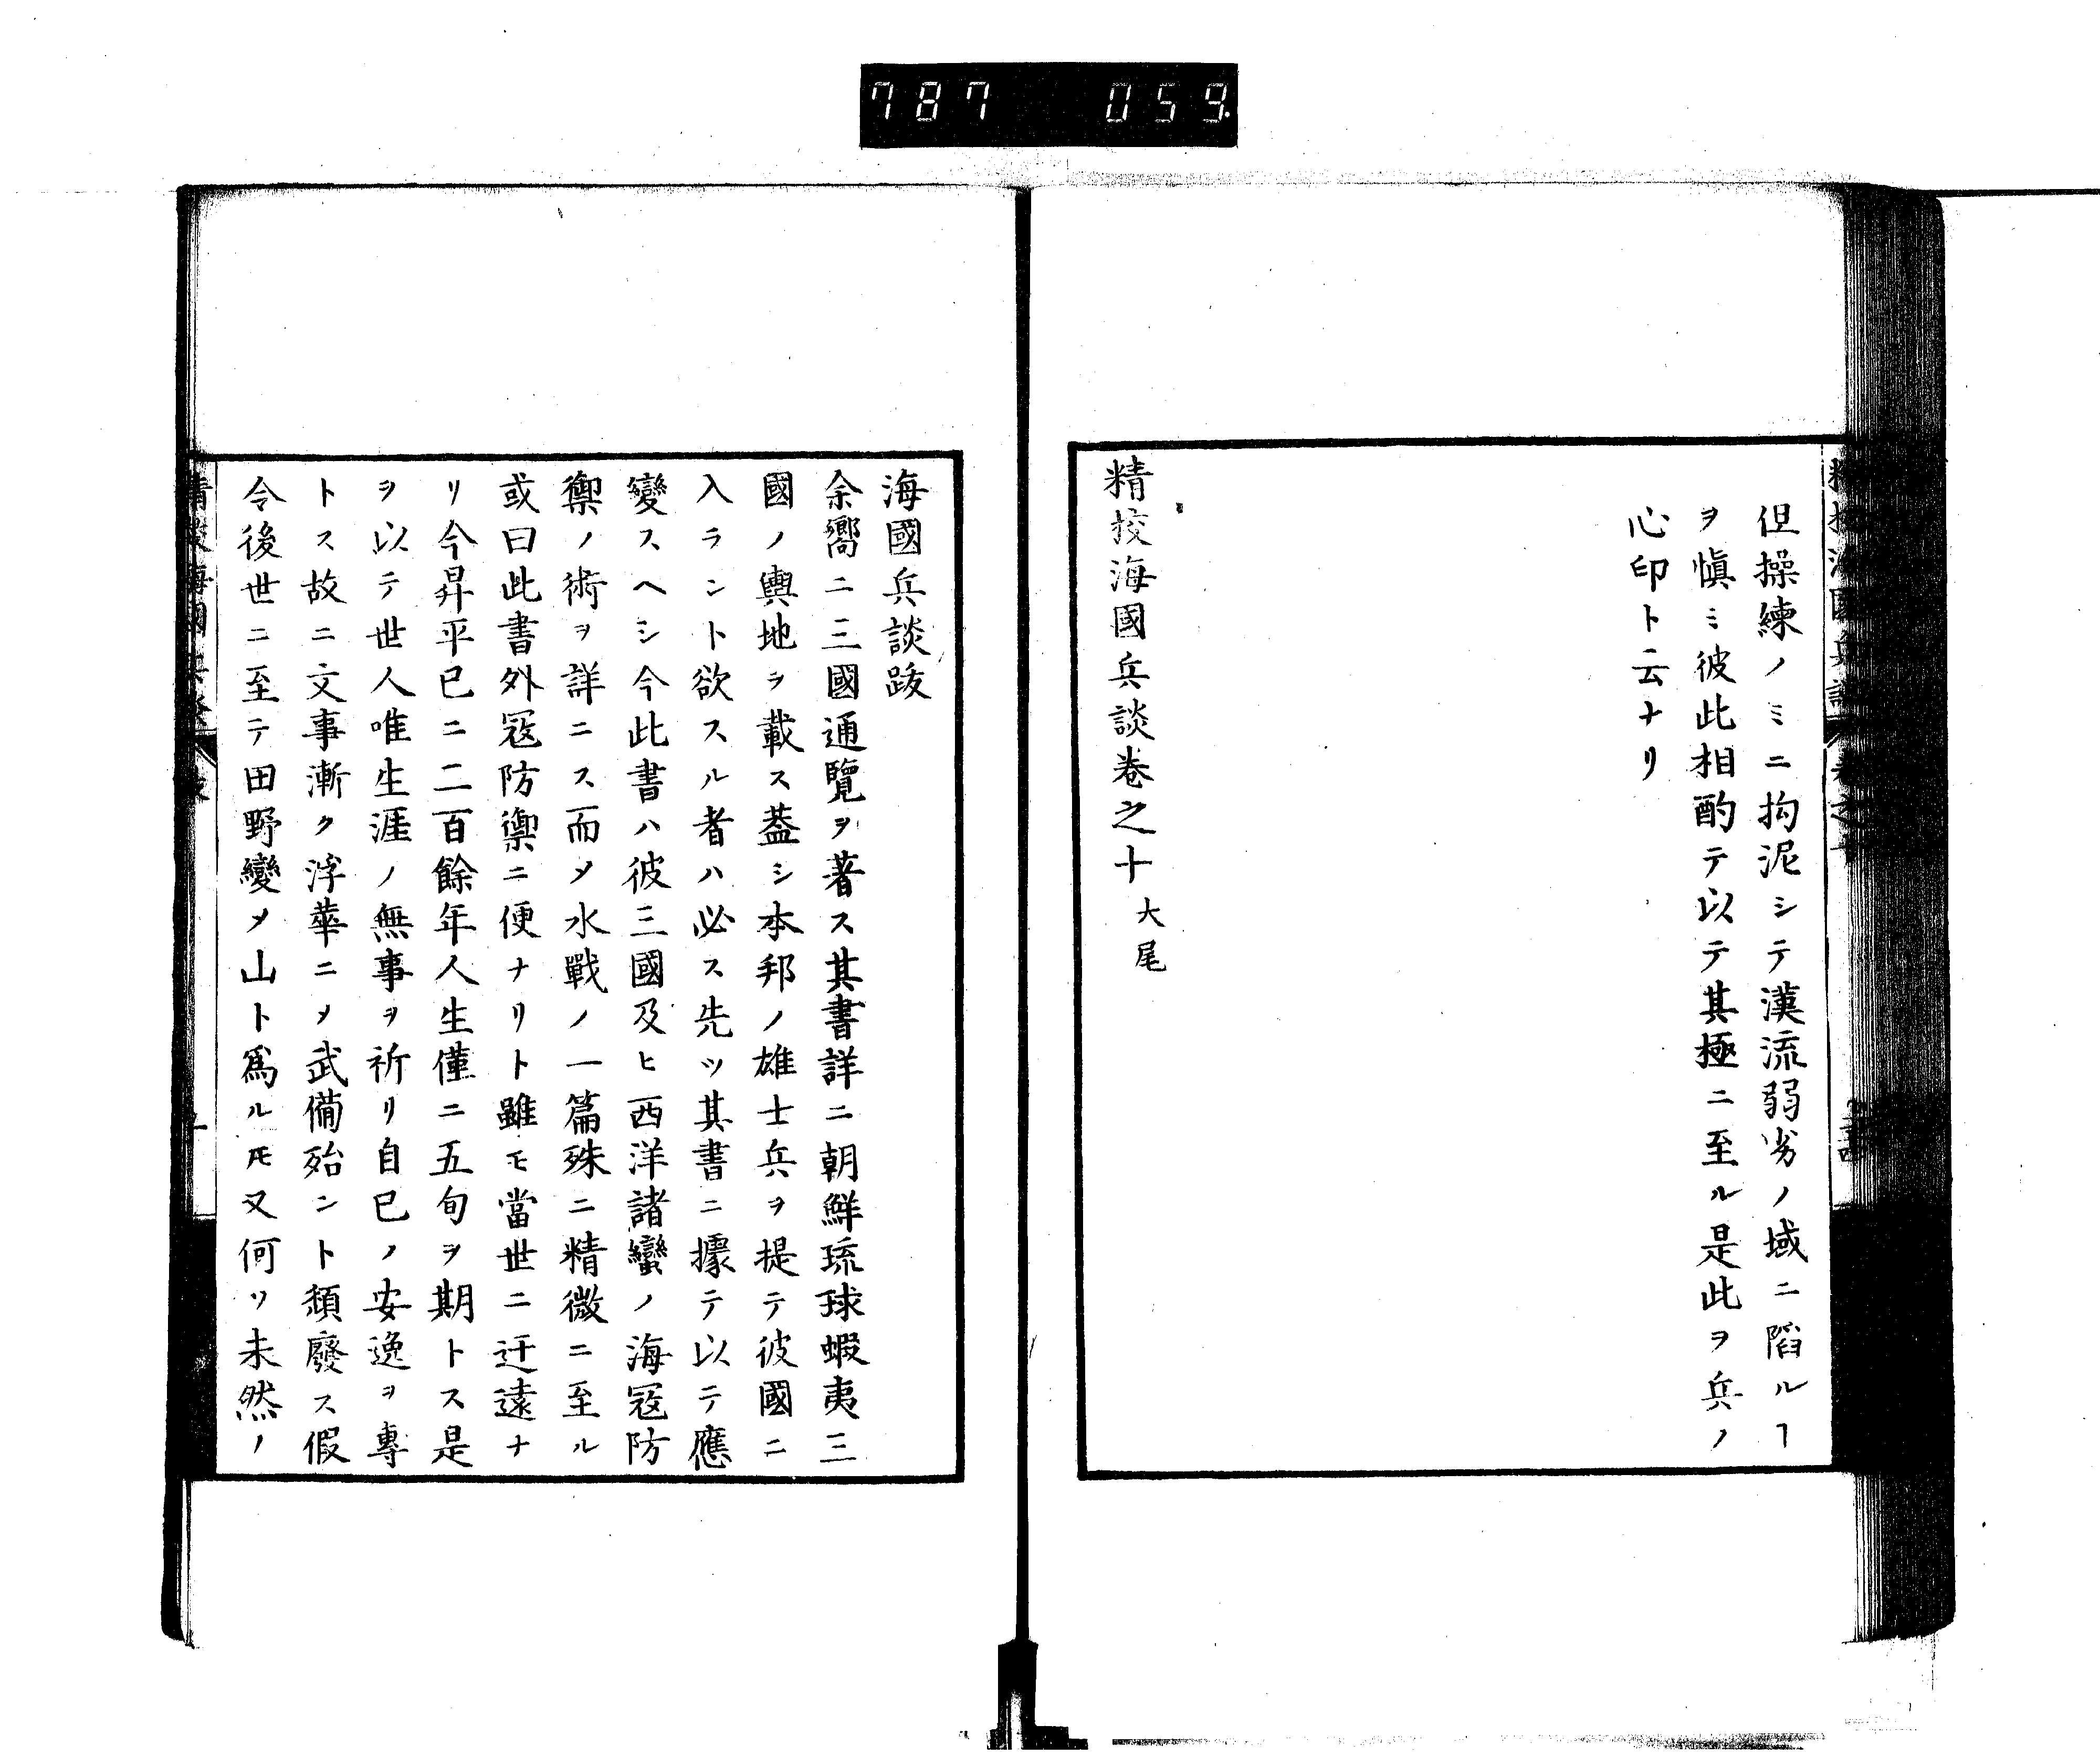 787 059
但操練ノミニ拘泥シテ漢流弱劣ノ域ニ陷ルヿ
ヲ愼ミ彼此相酌テ以テ其極ニ至ル是此ヲ兵ノ
心印ト云ナリ
精挍海國兵談卷之十 大尾
海國兵談跋
余嚮ニ三國通覽ヲ著ス其書詳ニ朝鮮琉球蝦夷三
國ノ輿地ヲ載ス葢シ本邦ノ雄士兵ヲ提テ彼國ニ
入ラント欲スル者ハ必ス先ツ其書ニ據テ以テ應
變スヘシ今此書ハ彼三國及ヒ西洋諸蠻ノ海冦防
禦ノ術ヲ詳ニス而メ水戰ノ一篇殊ニ精微ニ至ル
或曰此書外冦防禦ニ便ナリト雖モ當世ニ迂遠ナ
リ今昇平已ニ二百餘年人生僅ニ五旬ヲ期トス是
ヲ以テ世人唯生涯ノ無事ヲ祈リ自已ノ安逸ヲ專
トス故ニ文事漸ク浮華ニメ武備殆ント頽廢ス假
令後世ニ至テ田野變メ山ト爲ルモ又何ソ未然ノ